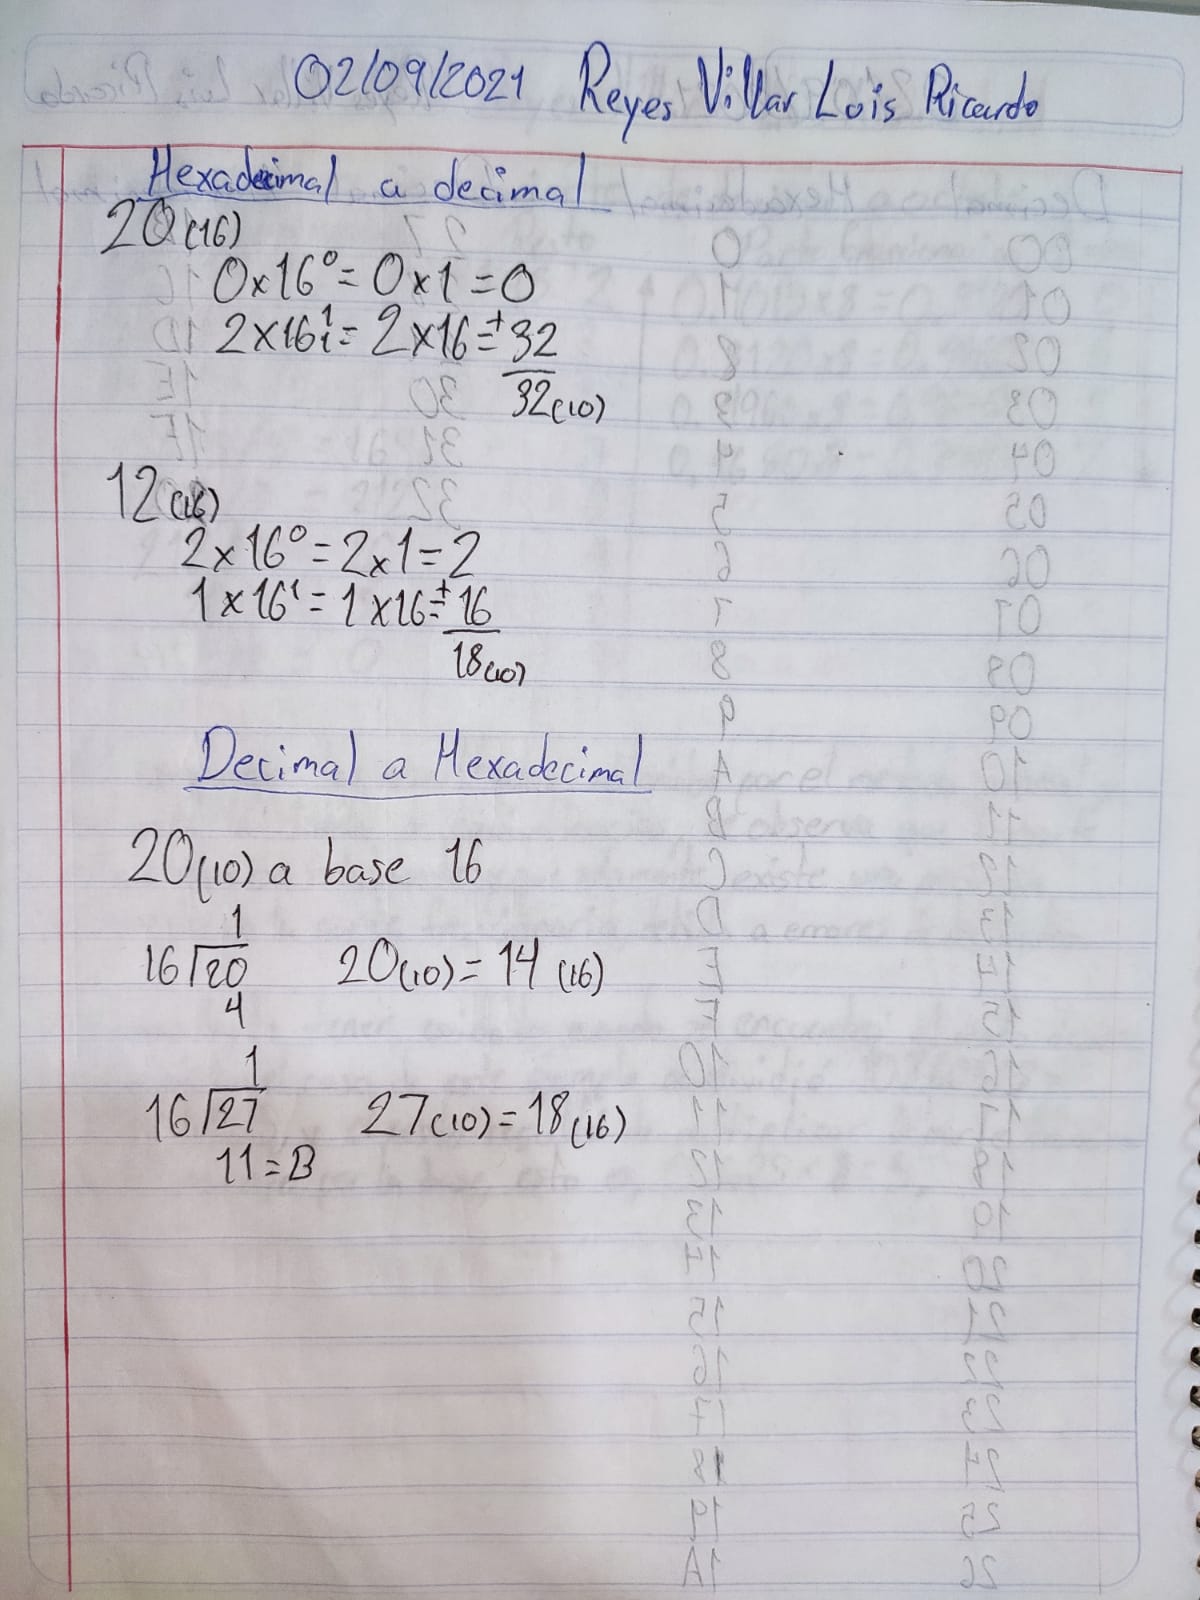 02/09/2021 Reyes Villar Luis Ricardo
Hexadecimal a decimal
20(16)
0x16⁰=0x1=0
2x16¹=2x16=+32
32(10)
12(16)
2x16⁰=2x1=2
1x16¹=1x16=+16
18(10)
Decimal a Hexadecimal
20(10) a base 16
1
16√20 20(10)=14(16)
4
1
16√27 27(10)=18(16)
11=B